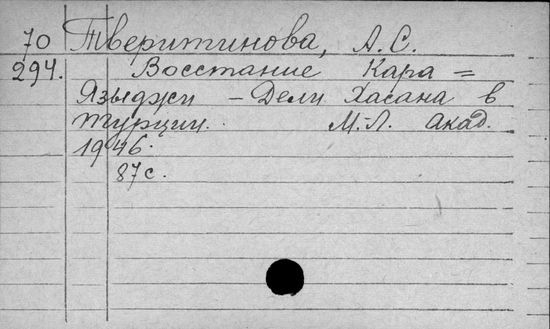 70 Тверитинова, А. С.
294. Восстание Кара =
Языджи – Дели Хасана в
Турции. М.-Л. Акад.
1946.
87 с.